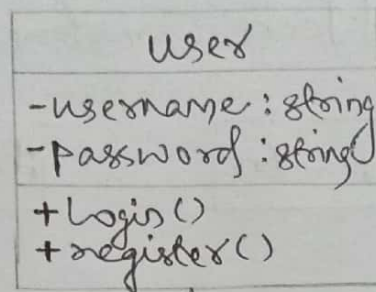 user
-username: string
-password: string
+login()
+register()